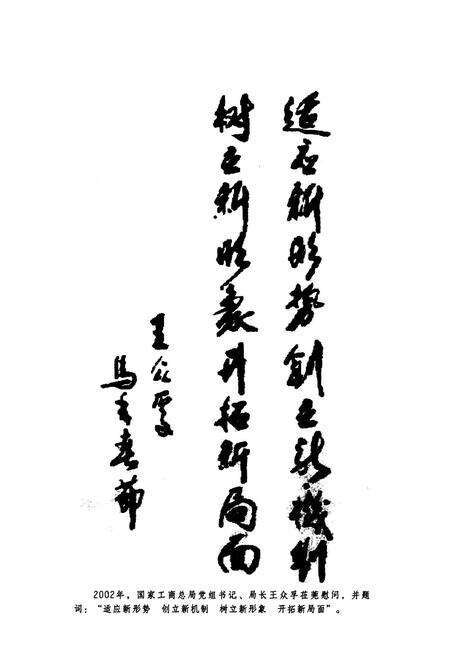 适应新形势創立新機制
树立新形象开拓新局面
王众孚
马年春節
2002年，国家工商总局党组书记、局长王众孚莅莞慰问，并题
词：“适应新形势　创立新机制　树立新形象　开拓新局面”。